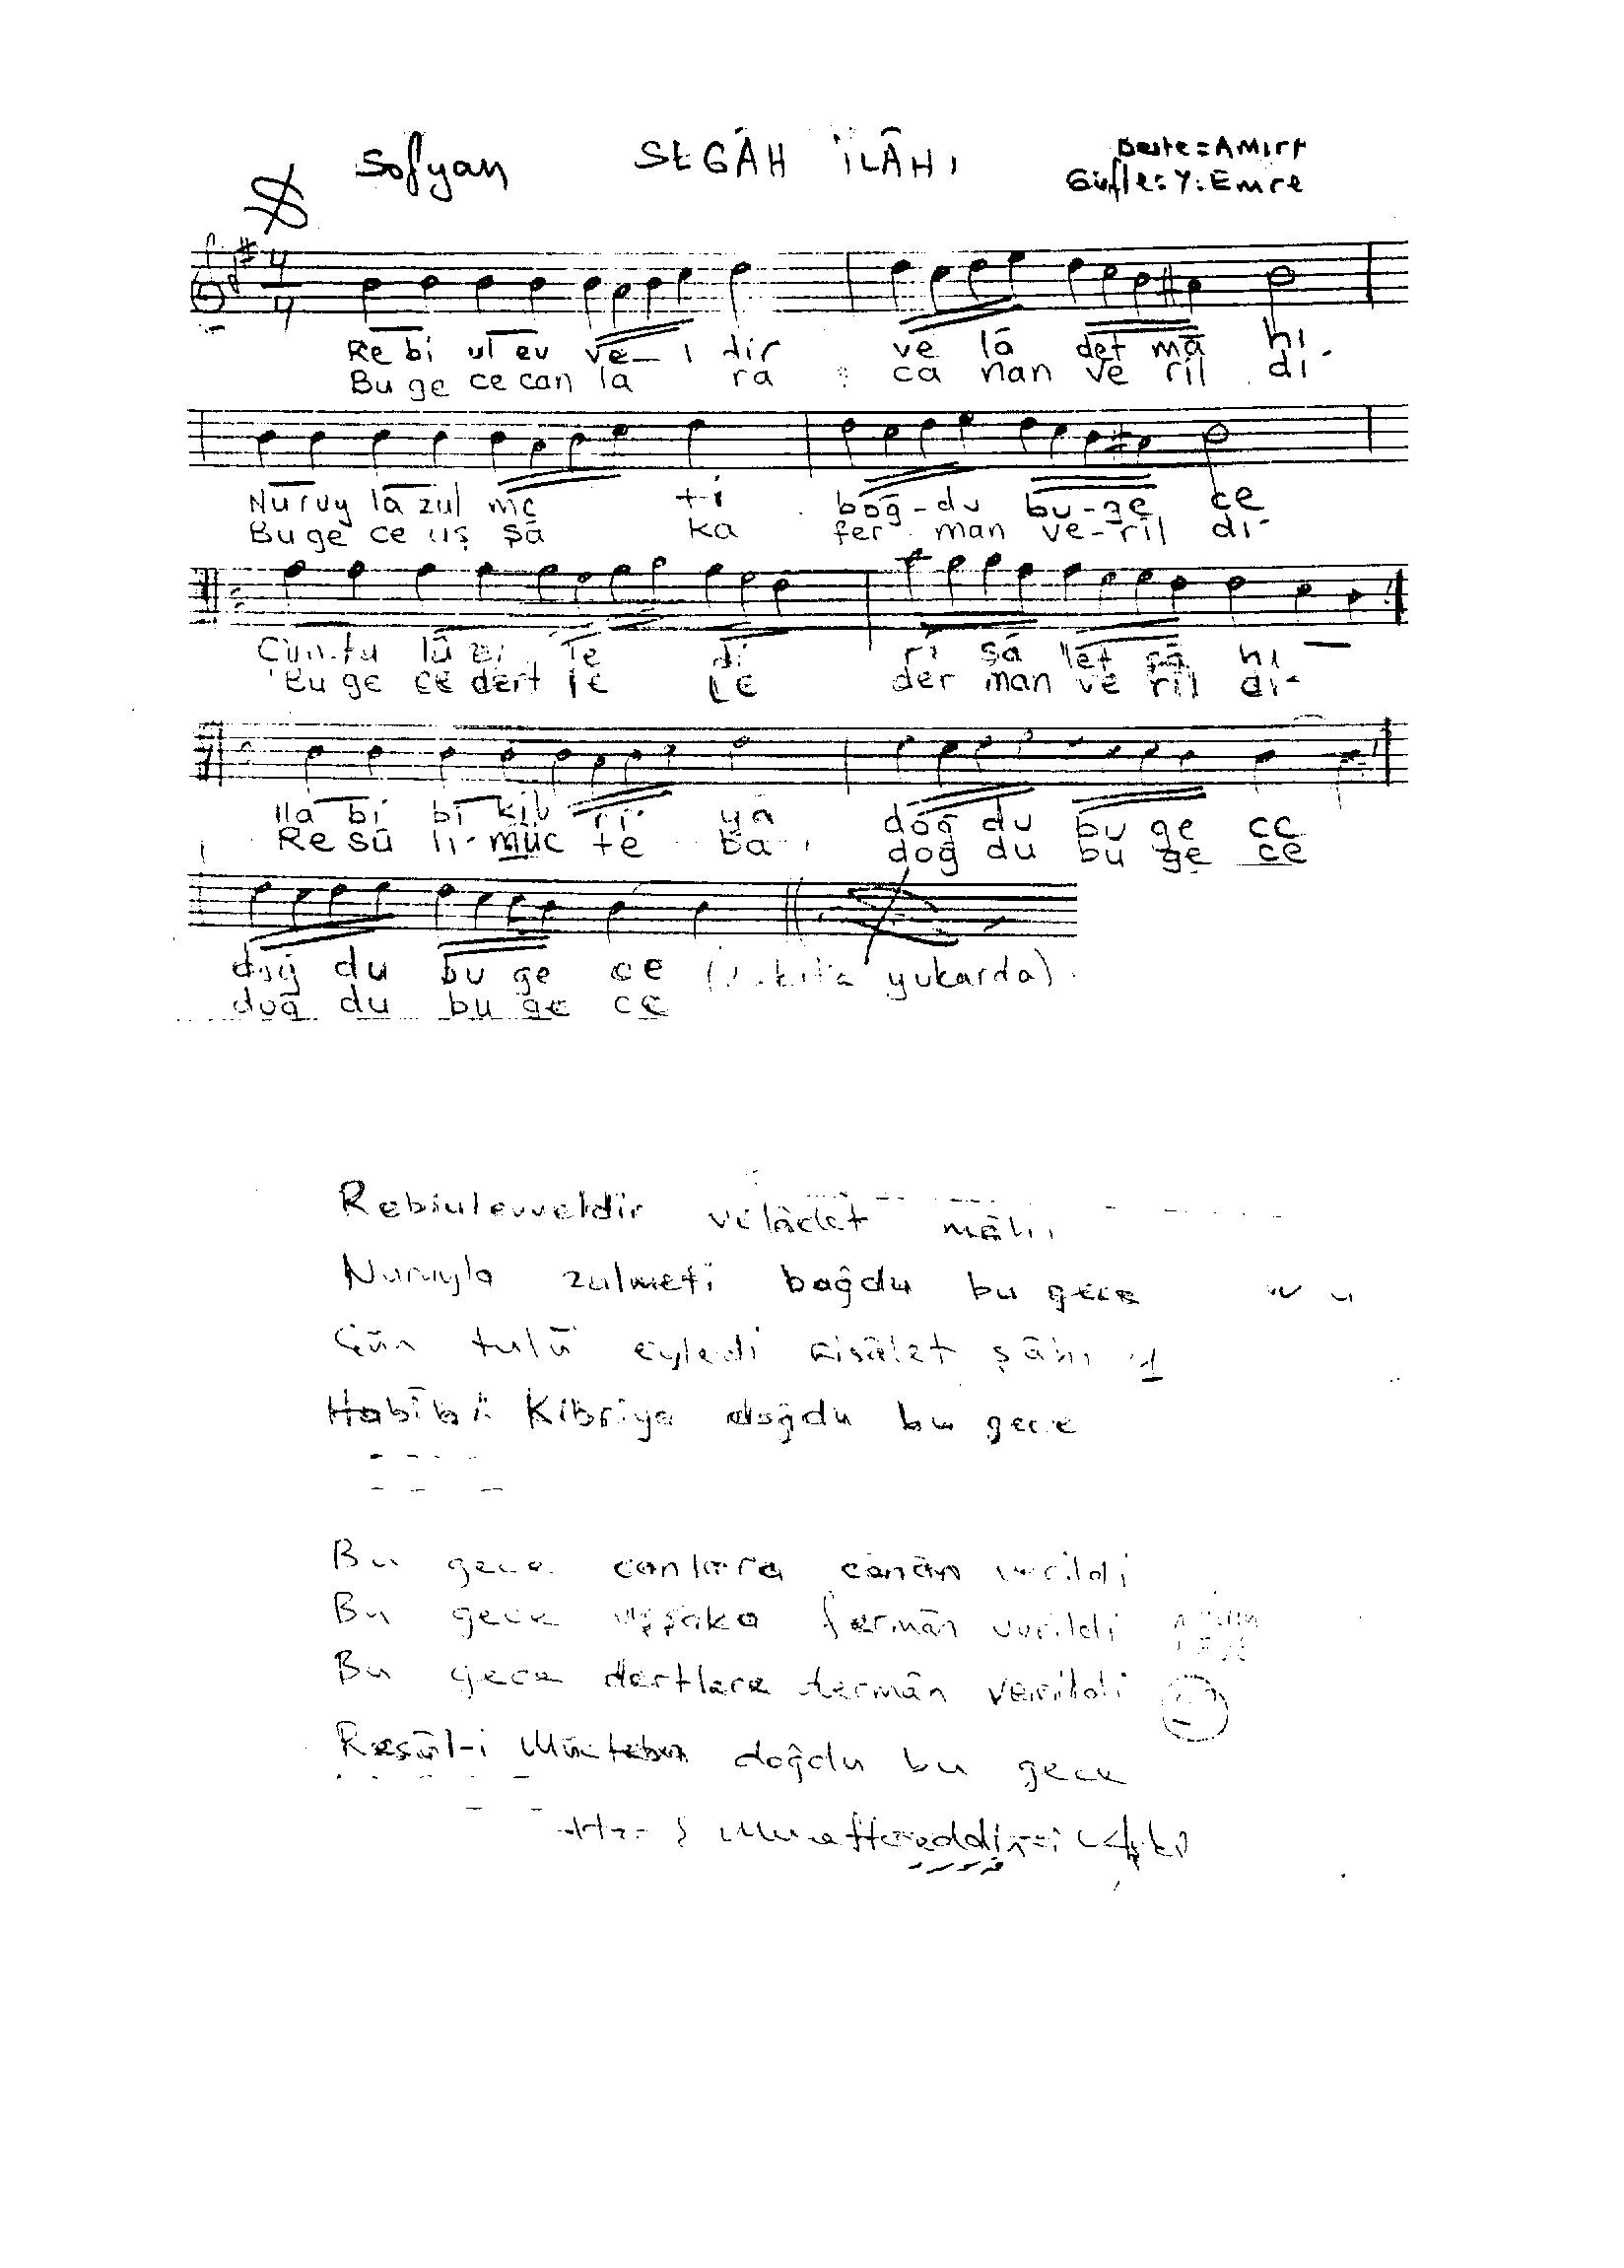 Sofyan SEGÂH İLÂHİ
Güfte: Y. Emre
4/4
Re bi ul ev ve l dir ve lâ det mâ hi
Bu ge ce can la ra ca nan ve ril di
Nu ruy la zul me ti boğ-du bu-ge ce
Bu ge ce uş şâ ka fer man ve-ril di
Gün tu lû ey le di ri sâ let şâ hi
Bu ge ce dert le re der man ve ril di
Ha bi bi kib ri yâ doğ du bu ge ce
Re sû li müc te ba doğ du bu ge ce
doğ du bu ge ce yukarda)
doğ du bu ge ce
Rebiulevveldir velâdet mâhı
Nuruyla zulmeti boğdu bu gece
Gün tulû eyledi risâlet şâhı
Habîbi Kibriya doğdu bu gece
Bu gece canlara cânân verildi
Bu gece uşşaka fermân verildi
Bu gece dertlere dermân verildi
Resûl-i Müctebâ doğdu bu gece